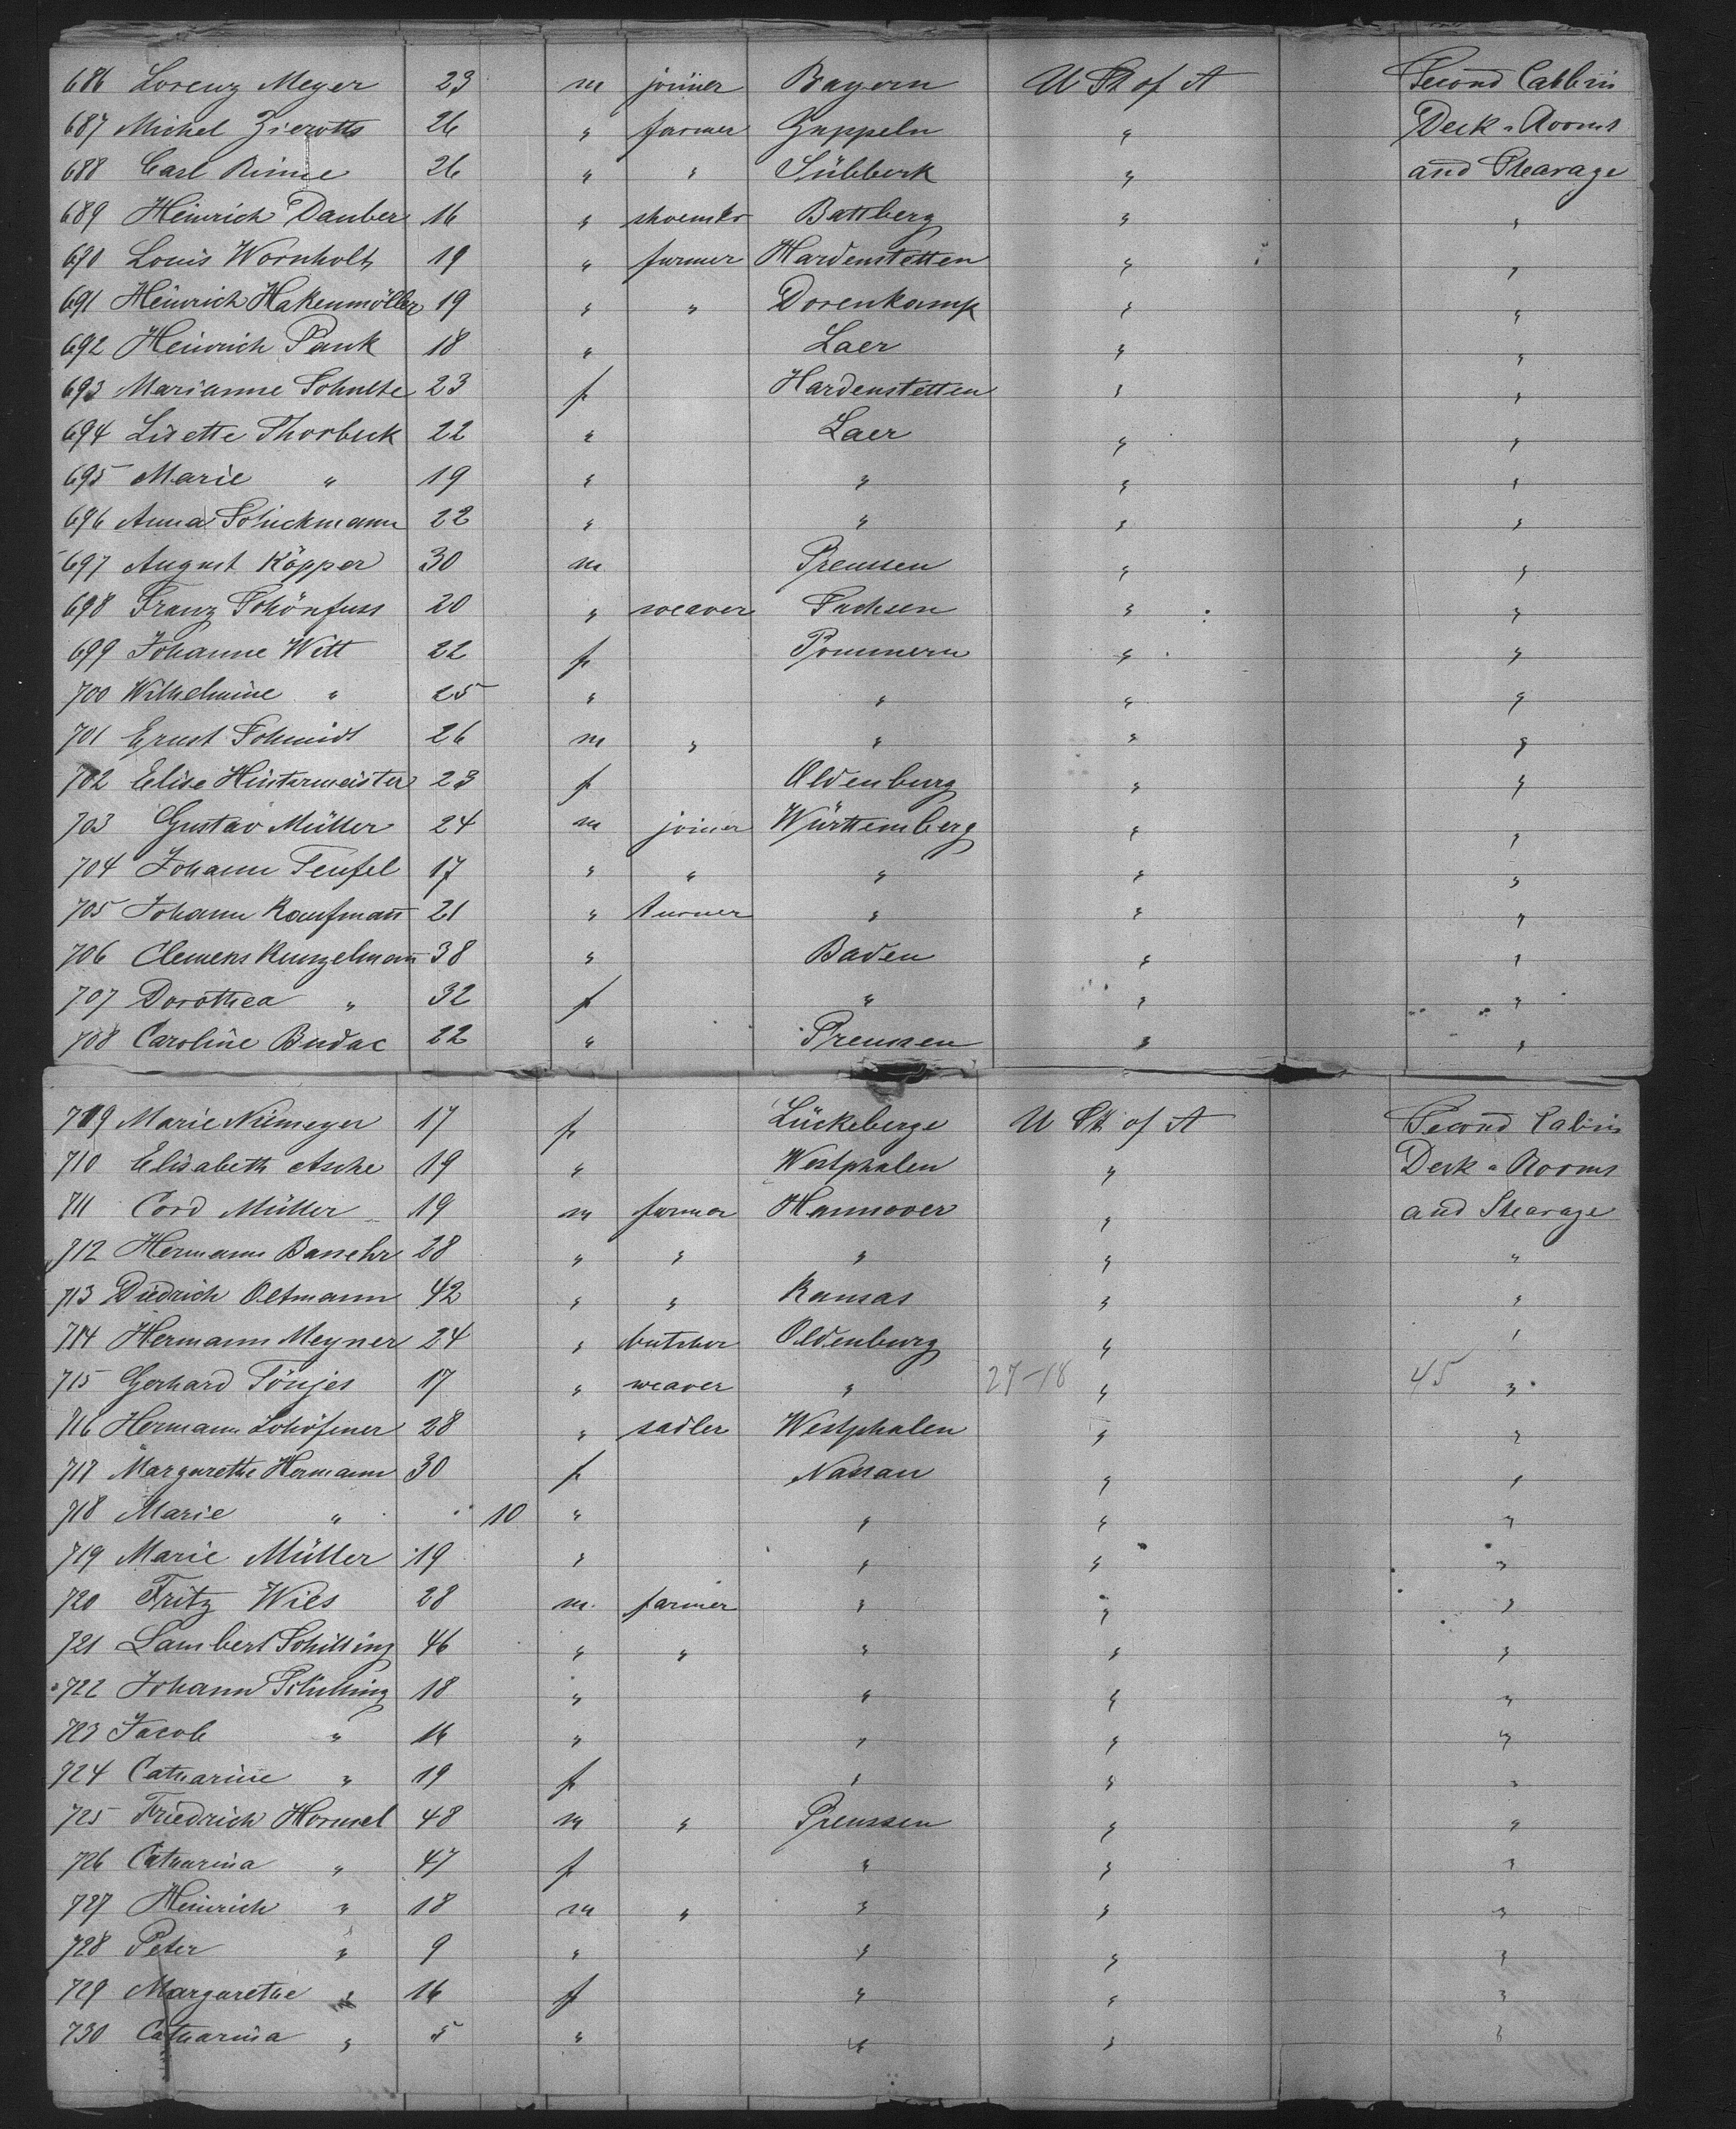 686 Lorenz Meyer 23 m joiner Bayern U St of A Second Cabbin
687 Michel Zierotts 26 " farmer Guppeln " Deck-Rooms
688 Carl Rinne 26 " " Lübberk " and Stearage
689 Heinrich Dauber 16 " shoemkr Battberg " "
690 Louis Wornholt 19 " farmer Hardenstetten " "
691 Heinrich Hakenmöller 19 " " Dorenkamp " "
692 Heinrich Pank 18 " Laer " "
693 Marianne Schulte 23 f Hardenstetten " "
694 Lisette Thorbeck 22 " Laer " "
695 Marie " 19 " " " "
696 Anna Schickmann 22 " " " "
697 August Köpper 30 m Preussen " "
698 Franz Schönfuss 20 " weaver Sachsen " "
699 Johanne Witt 22 f Pommern " "
700 Wilhelmine " 25 " " " "
701 Ernst Schmidt 26 m " " " "
702 Elise Hintermeister 23 f Oldenburg " "
703 Gustav Müller 24 m joiner Württemberg " "
704 Johann Teufel 17 " " " " "
705 Johann Kaufmann 21 " turner " " "
706 Clemens Kunzelmann 38 " Baden " "
707 Dorothea " 32 f " " "
708 Caroline Budac 22 " Preussen " "
709 Marie Niemeyer 17 f Lückeberge U St of A Second Cabin
710 Elisabeth Asche 19 " Westphalen " Deck-Rooms
711 Cord Müller 19 m farmer Hannover " and Stearage
712 Hermann Bansehr 28 " " " " "
713 Diedrich Oltmann 42 " " Kansas " "
714 Hermann Meyner 24 " butcher Oldenburg " "
715 Gerhard Tönjes 17 " weaver " 27-18 " 45 "
716 Hermann Lohöfener 28 " sadler Westphalen " "
717 Margarethe Hermann 30 f Nassau " "
718 Marie " 10 " " " "
719 Marie Müller 19 " " " "
720 Fritz Wies 28 m farmer " " "
721 Lambert Schilling 46 " " " " "
722 Johann Schilling 18 " " " "
723 Jacob " 16 " " " "
724 Catharine " 19 f " " "
725 Friedrich Hormel 48 m " Preussen " "
726 Catharina " 47 f " " "
727 Heinrich " 18 m " " " "
728 Peter " 9 " " " "
729 Margarethe " 16 f " " "
730 Catharina " 5 " " " "